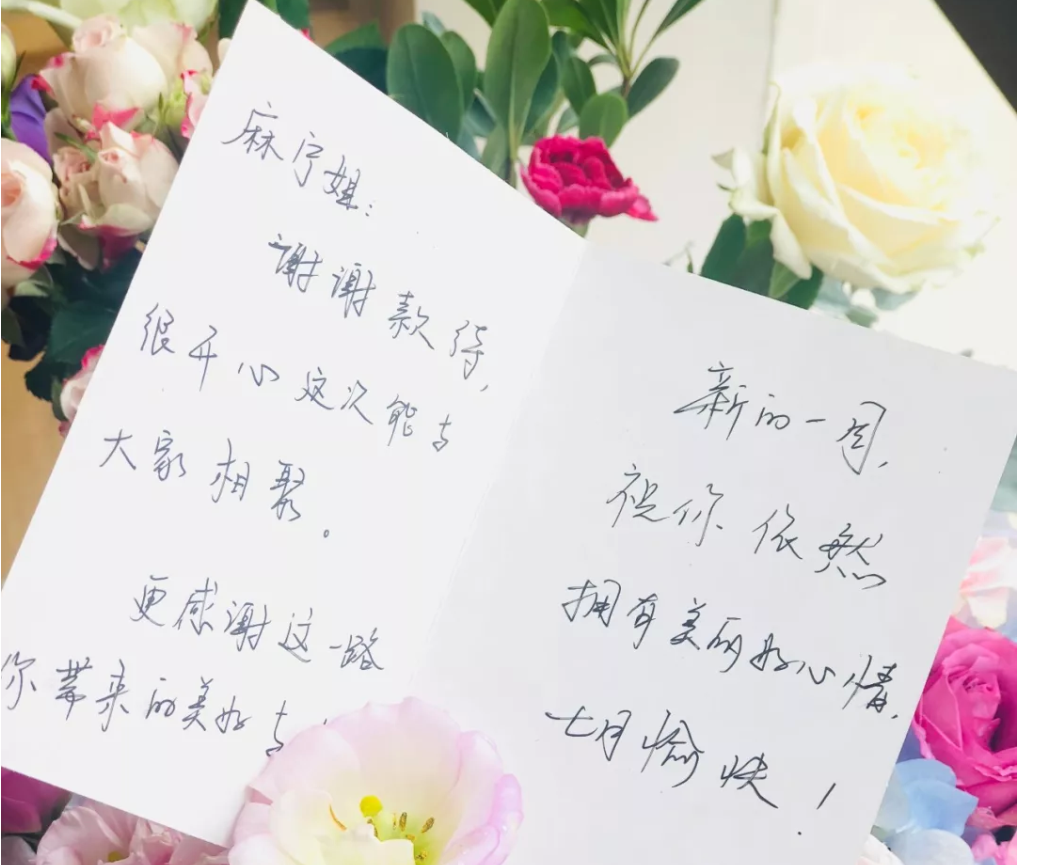 麻宁姐：
谢谢款待，
很开心这次能与
大家相聚。
更感谢这一路
你带来的美好与
新的一月，
祝你依然
拥有美丽好心情，
七月愉快！